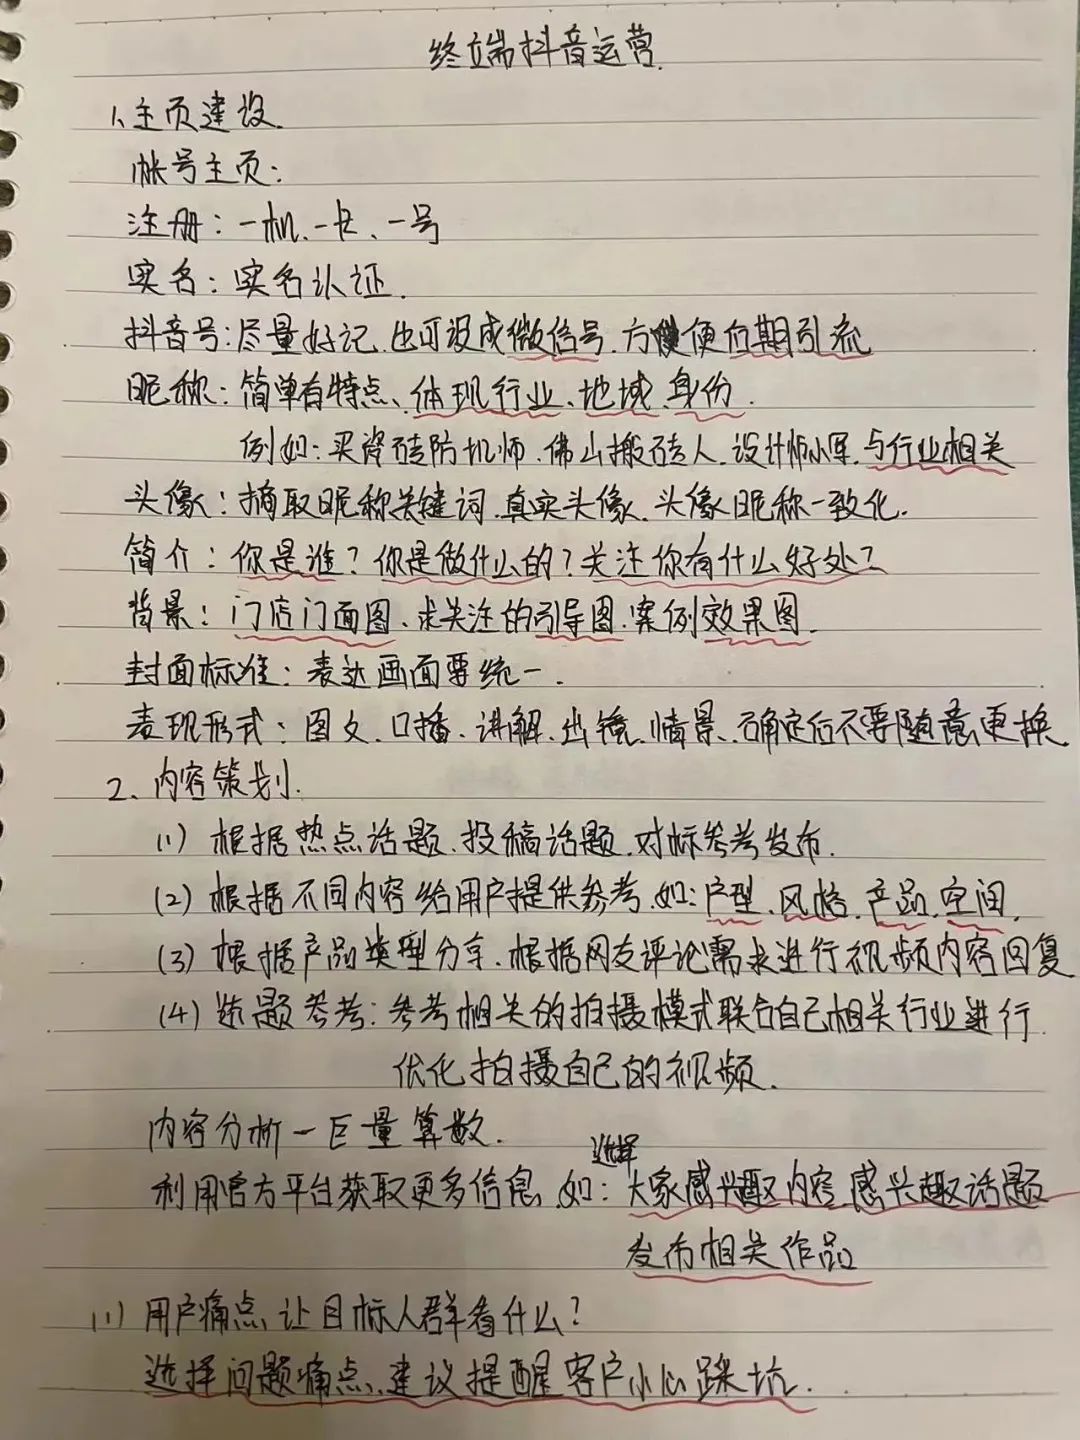 终端抖音运营.
1、主页建设.
帐号主页:
注册: 一机、一卡、一号
实名: 实名认证.
抖音号: 尽量好记.也可设成微信号.方便后期引流
昵称: 简单有特点、体现行业、地域、身份.
例如: 买瓷砖防坑师、佛山搬砖人、设计师小军.与行业相关
头像: 摘取昵称关键词.真实头像、头像昵称一致化.
简介: 你是谁? 你是做什么的? 关注你有什么好处?
背景: 门店门面图、求关注的引导图.案例效果图.
封面标准: 表达画面要统一.
表现形式: 图文、口播、讲解、出镜、情景、确定后不要随意更换
2、内容策划.
(1) 根据热点话题.投稿话题.对标参考发布.
(2) 根据不同内容给用户提供参考.如: 户型、风格、产品、空间.
(3) 根据产品类型分享.根据网友评论需求进行视频内容回复
(4) 选题参考: 参考相关的拍摄模式联合自己相关行业进行
优化拍摄自己的视频.
内容分析一巨量算数.
利用官方平台获取更多信息.如: 选择大家感兴趣内容.感兴趣话题
发布相关作品
(1) 用户痛点.让目标人群看什么?
选择问题痛点、建议提醒客户小心踩坑.